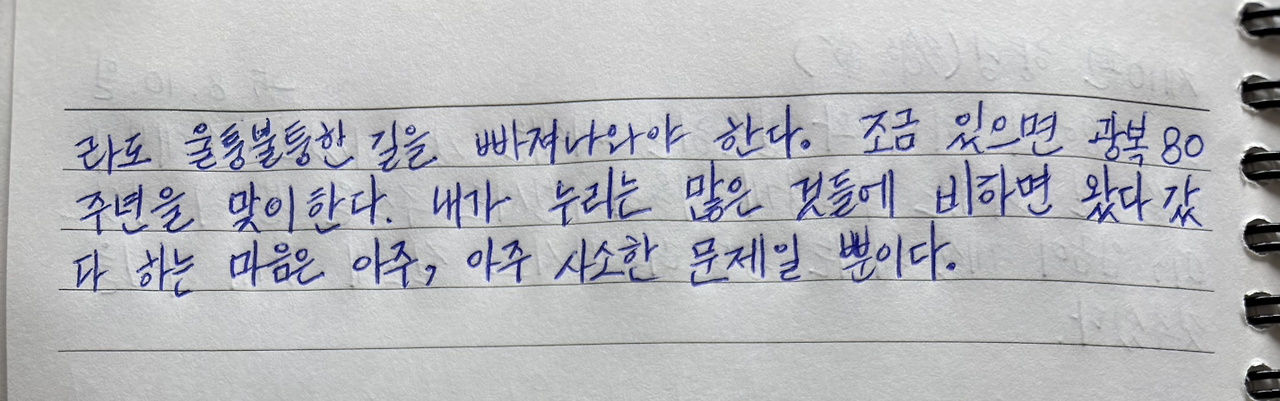 라도 울퉁불퉁한 길을 빠져나와야 한다. 조금 있으면 광복 80
주년을 맞이한다. 내가 누리는 많은 것들에 비하면 왔다 갔
다 하는 마음은 아주, 아주 사소한 문제일 뿐이다.